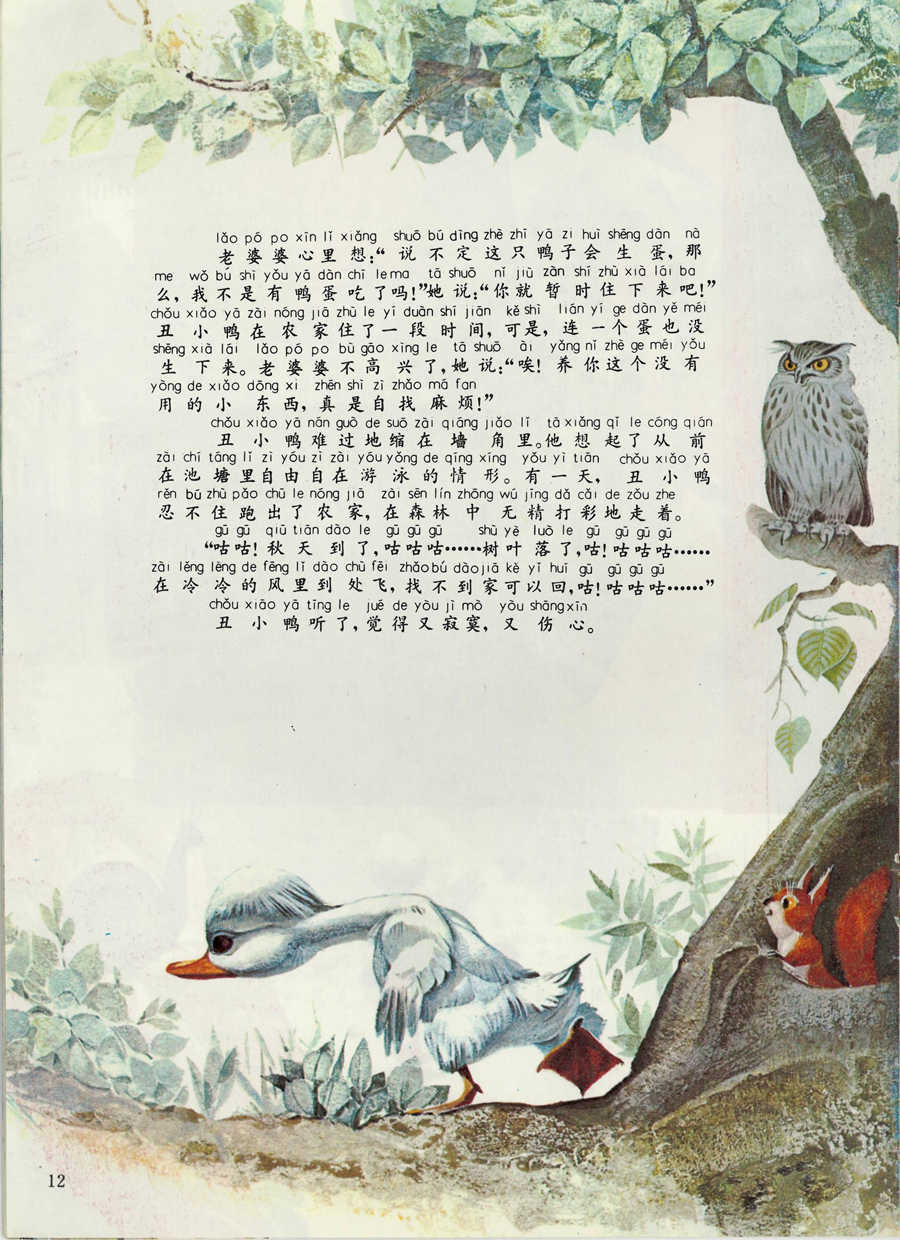 lǎo pó po xīn lǐ xiǎng shuō bú dìng zhè zhī yā zi huì shēng dàn nà
老婆婆心里想:“说不定这只鸭子会生蛋,那
me wǒ bú shì yǒu yā dàn chī le ma tā shuō nǐ jiù zàn shí zhù xià lái ba
么,我不是有鸭蛋吃了吗!”她说:“你就暂时住下来吧!”
chǒu xiǎo yā zài nóng jiā zhù le yí duàn shí jiān kě shì lián yí ge dàn yě méi
丑小鸭在农家住了一段时间,可是,连一个蛋也没
shēng xià lái lǎo pó po bù gāo xìng le tā shuō ài yǎng nǐ zhè ge méi yǒu
生下来。老婆婆不高兴了,她说:“唉!养你这个没有
yòng de xiǎo dōng xi zhēn shì zì zhǎo má fan
用的小东西,真是自找麻烦!”
chǒu xiǎo yā nán guò de suō zài qiáng jiǎo lǐ tā xiǎng qǐ le cóng qián
丑小鸭难过地缩在墙角里。他想起了从前
zài chí táng lǐ zì yóu zì zài yóu yǒng de qíng xíng yǒu yì tiān chǒu xiǎo yā
在池塘里自由自在游泳的情形。有一天,丑小鸭
rěn bú zhù pǎo chū le nóng jiā zài sēn lín zhōng wú jīng dǎ cǎi de zǒu zhe
忍不住跑出了农家,在森林中无精打彩地走着。
gū gū qiū tiān dào le gū gū gū shù yè luò le gū gū gū gū
“咕咕!秋天到了,咕咕咕……树叶落了,咕!咕咕咕……
zài lěng lěng de fēng lǐ dào chù fēi zhǎo bú dào jiā kě yǐ huí gū gū gū gū
在冷冷的风里到处飞,找不到家可以回,咕!咕咕咕……”
chǒu xiǎo yā tīng le jué de yòu jì mò yòu shāng xīn
丑小鸭听了,觉得又寂寞,又伤心。
12